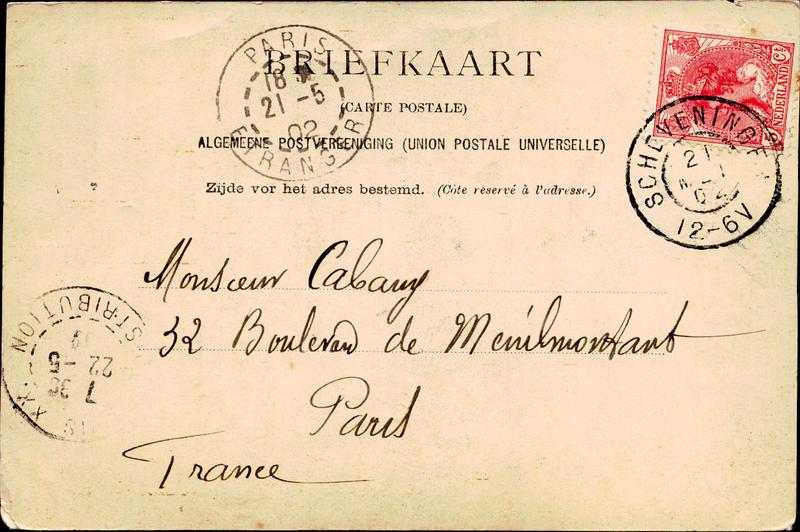 BRIEFKAART
(CARTE POSTALE)
ALGEMEENE POSTVEREENIGING (UNION POSTALE UNIVERSELLE)
Zijde vor het adres bestemd. (Côte reservé à l'adresse.)
PARIS
18
21 -5
02
ETRANGER
NEDERLAND
5 Ct
SCHEVENINGEN
21
02
12-6V
Monsieur Cabany
32 Boulevard de Ménilmontant
Paris
France
DISTRIBUTION
22 -5
7 30
XX